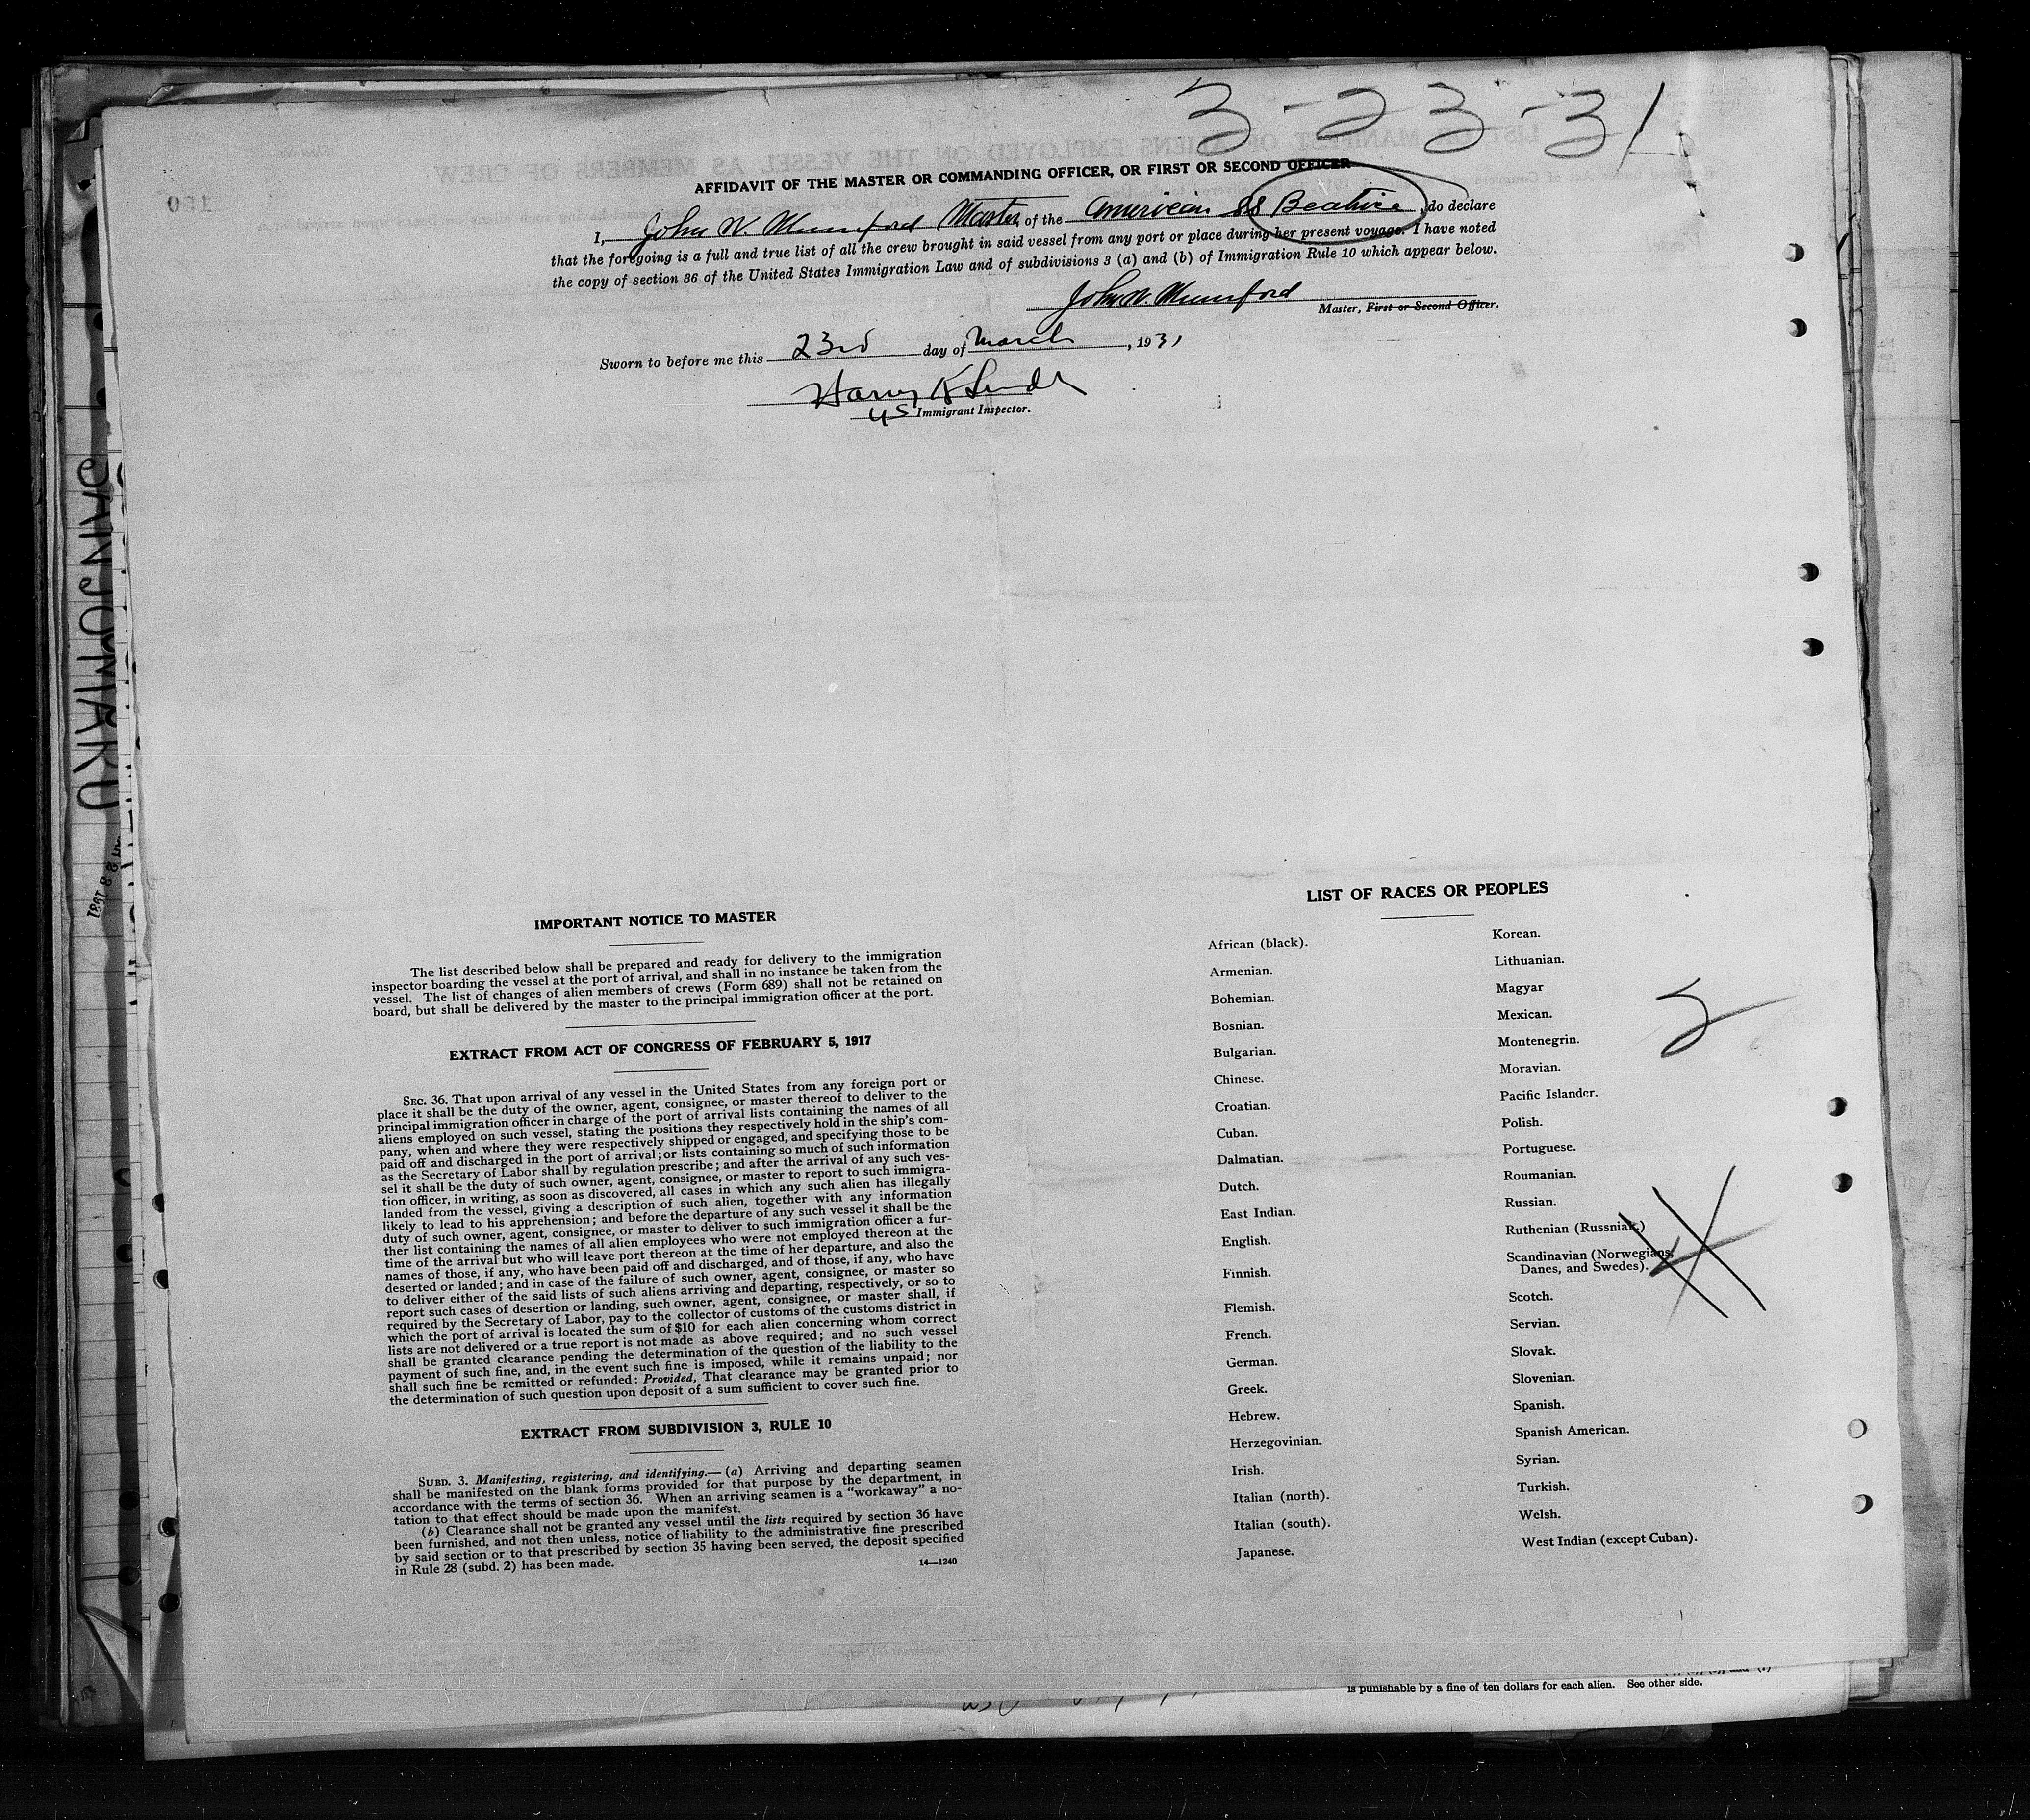 3-23-31
AFFIDAVIT OF THE MASTER OR COMMANDING OFFICER, OR FIRST OR SECOND OFFICER
I, John W. Mumford Master, of the American SS Beatrice, do declare
that the foregoing is a full and true list of all the crew brought in said vessel from any port or place during her present voyage. I have noted
the copy of section 36 of the United States Immigration Law and of subdivisions 3 (a) and (b) of Immigration Rule 10 which appear below.
John W. Mumford
Master, First or Second Officer.
Sworn to before me this 23rd day of March, 1931
Harry K
US Immigrant Inspector.
150
SANJO MARU
IMPORTANT NOTICE TO MASTER
The list described below shall be prepared and ready for delivery to the immigration
inspector boarding the vessel at the port of arrival, and shall in no instance be taken from the
vessel. The list of changes of alien members of crews (Form 689) shall not be retained on
board, but shall be delivered by the master to the principal immigration officer at the port.
EXTRACT FROM ACT OF CONGRESS OF FEBRUARY 5, 1917
SEC. 36. That upon arrival of any vessel in the United States from any foreign port or
place it shall be the duty of the owner, agent, consignee, or master thereof to deliver to the
principal immigration officer in charge of the port of arrival lists containing the names of all
aliens employed on such vessel, stating the positions they respectively hold in the ship's com-
pany, when and where they were respectively shipped or engaged, and specifying those to be
paid off and discharged in the port of arrival; or lists containing so much of such information
as the Secretary of Labor shall by regulation prescribe; and after the arrival of any such ves-
sel it shall be the duty of such owner, agent, consignee, or master to report to such immigra-
tion officer, in writing, as soon as discovered, all cases in which any such alien has illegally
landed from the vessel, giving a description of such alien, together with any information
likely to lead to his apprehension; and before the departure of any such vessel it shall be the
duty of such owner, agent, consignee, or master to deliver to such immigration officer a fur-
ther list containing the names of all alien employees who were not employed thereon at the
time of the arrival but who will leave port thereon at the time of her departure, and also the
names of those, if any, who have been paid off and discharged, and of those, if any, who have
deserted or landed; and in case of the failure of such owner, agent, consignee, or master so
to deliver either of the said lists of such aliens arriving and departing, respectively, or so to
report such cases of desertion or landing, such owner, agent, consignee, or master shall, if
required by the Secretary of Labor, pay to the collector of customs of the customs district in
which the port of arrival is located the sum of $10 for each alien concerning whom correct
lists are not delivered or a true report is not made as above required; and no such vessel
shall be granted clearance pending the determination of the question of the liability to the
payment of such fine, and, in the event such fine is imposed, while it remains unpaid; nor
shall such fine be remitted or refunded: Provided, That clearance may be granted prior to
the determination of such question upon deposit of a sum sufficient to cover such fine.
EXTRACT FROM SUBDIVISION 3, RULE 10
SUBD. 3. Manifesting, registering, and identifying.—(a) Arriving and departing seamen
shall be manifested on the blank forms provided for that purpose by the department, in
accordance with the terms of section 36. When an arriving seamen is a "workaway" a no-
tation to that effect should be made upon the manifest.
(b) Clearance shall not be granted any vessel until the lists required by section 36 have
been furnished, and not then unless, notice of liability to the administrative fine prescribed
by said section or to that prescribed by section 35 having been served, the deposit specified
in Rule 28 (subd. 2) has been made.
14—1240
LIST OF RACES OR PEOPLES
African (black).
Armenian.
Bohemian.
Bosnian.
Bulgarian.
Chinese.
Croatian.
Cuban.
Dalmatian.
Dutch.
East Indian.
English.
Finnish.
Flemish.
French.
German.
Greek.
Hebrew.
Herzegovinian.
Irish.
Italian (north).
Italian (south).
Japanese.
Korean.
Lithuanian.
Magyar
Mexican.
Montenegrin.
Moravian.
Pacific Islander.
Polish.
Portuguese.
Roumanian.
Russian.
Ruthenian (Russniak.)
Scandinavian (Norwegians,
Danes, and Swedes).
Scotch.
Servian.
Slovak.
Slovenian.
Spanish.
Spanish American.
Syrian.
Turkish.
Welsh.
West Indian (except Cuban).
is punishable by a fine of ten dollars for each alien. See other side.